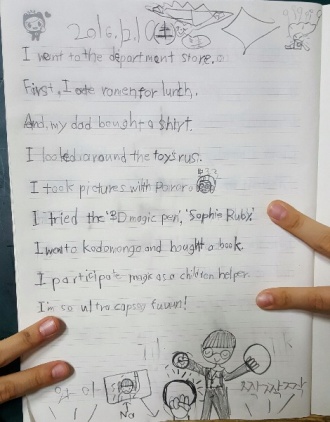 2016.6.1(土)
I went to the department store.
First, I ate ramen for lunch.
And, my dad bought a shirt.
I looked around the toysrus.
I took pictures with Pororo.
I tried the '3D magic pen', 'Sophie Ruby'.
I went to kodomongo and bought a book.
I participate magic as a children helper.
I'm so ultra capssy fuwun!
와 이
짝짝짝
No